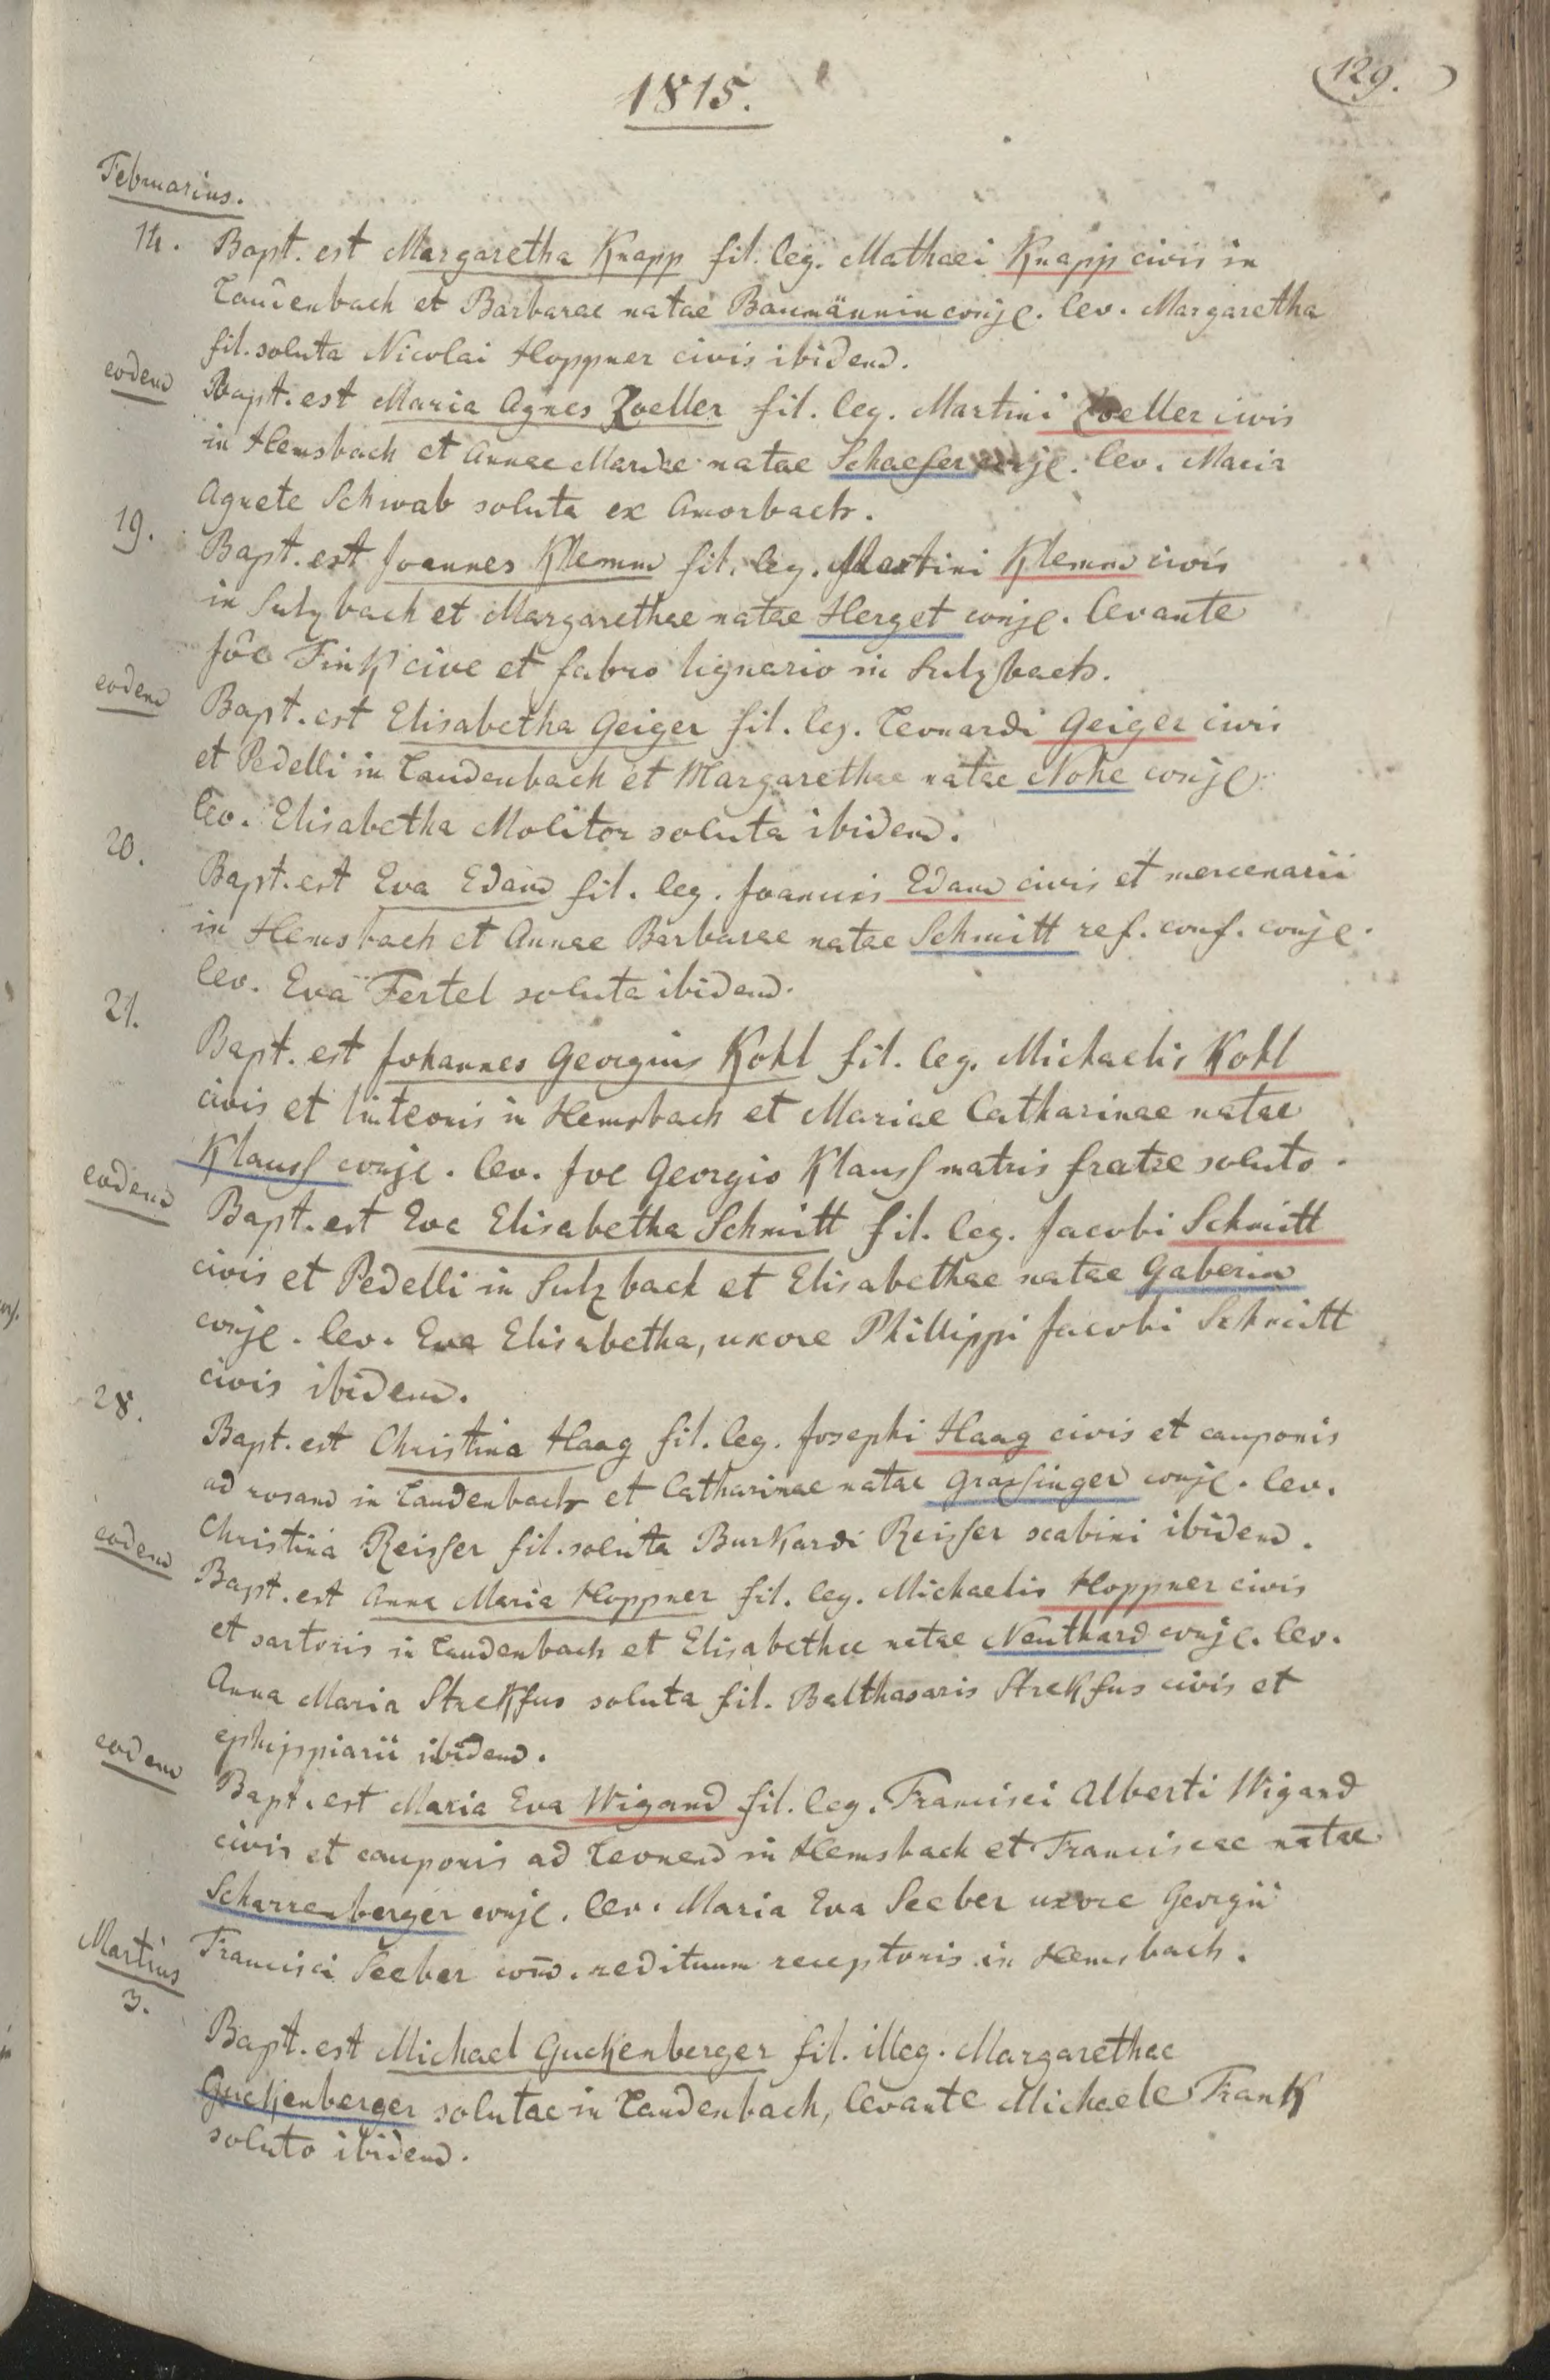 129.
1815.
Februarius.
14. Bapt. est Margaretha Knapp fil. leg. Mathaei Knapp civis in
Laudenbach et Barbarae natae Baumännin conjc. lev. Margaretha
fil. soluta Nicolai Hoppner civis ibidem.
eodem Bapt. est Maria Agnes Zoeller fil. leg. Martini Zoeller civis
in Hemsbach et Annae Mariae natae Schaefer conjc. lev. Maria
Agnete Schwab soluta ex Amorbach.
19. Bapt. est Joannes Klemm fil. leg. Martini Klemm civis
in Sulzbach et Margarethae natae Herget conjc. levante
Jôe Fink cive et fabro lignario in Sulzbach.
eodem Bapt. est Elisabetha Geiger fil. leg. Leonardi Geiger civis
et Pedelli in Laudenbach et Margarethae natae Nohe conjc.
lev. Elisabetha Molitor soluta ibidem.
20. Bapt. est Eva Edam fil. leg. Joannis Edam civis et mercenarii
in Hemsbach et Annae Barbarae natae Schmitt ref. conf. conjc.
lev. Eva Fertel soluta ibidem.
21. Bapt. est Johannes Georgius Kohl fil. leg. Michaelis Kohl
civis et linteonis in Hemsbach et Mariae Catharinae natae
Klauss conjc. lev. Joe Georgio Klauss matris fratre soluto.
eodem Bapt. est Eva Elisabetha Schmitt fil. leg. Jacobi Schmitt
civis et Pedelli in Sulzbach et Elisabethae natae Gaberin
conjc. lev. Eva Elisabetha, uxore Phillippi Jacobi Schmitt
civis ibidem.
28. Bapt. est Christina Haag fil. leg. Josephi Haag civis et cauponis
ad rosam in Laudenbach et Catharinae natae Grassinger conjc. lev.
Christina Reisser fil. soluta Burkardi Reisser scabini ibidem.
eodem Bapt. est Anna Maria Hoppner fil. leg. Michaelis Hoppner civis
et sartoris in Laudenbach et Elisabethae natae Neuthard conjc. lev.
Anna Maria Strekfus soluta fil. Balthasaris Strekfus civis et
ephippiarii ibidem.
eodem Bapt. est Maria Eva Wigand fil. leg. Francisci Alberti Wigand
civis et cauponis ad Leonem in Hemsbach et Franciscae natae
Scharrenberger conjc. lev. Maria Eva Seeber uxore Georgii
Francisci Seeber com̄. redituum receptoris in Hemsbach.
Martius
3. Bapt. est Michael Guckenberger fil. illeg. Margarethae
Guckenberger solutae in Laudenbach, levante Michaele Frank
soluto ibidem.